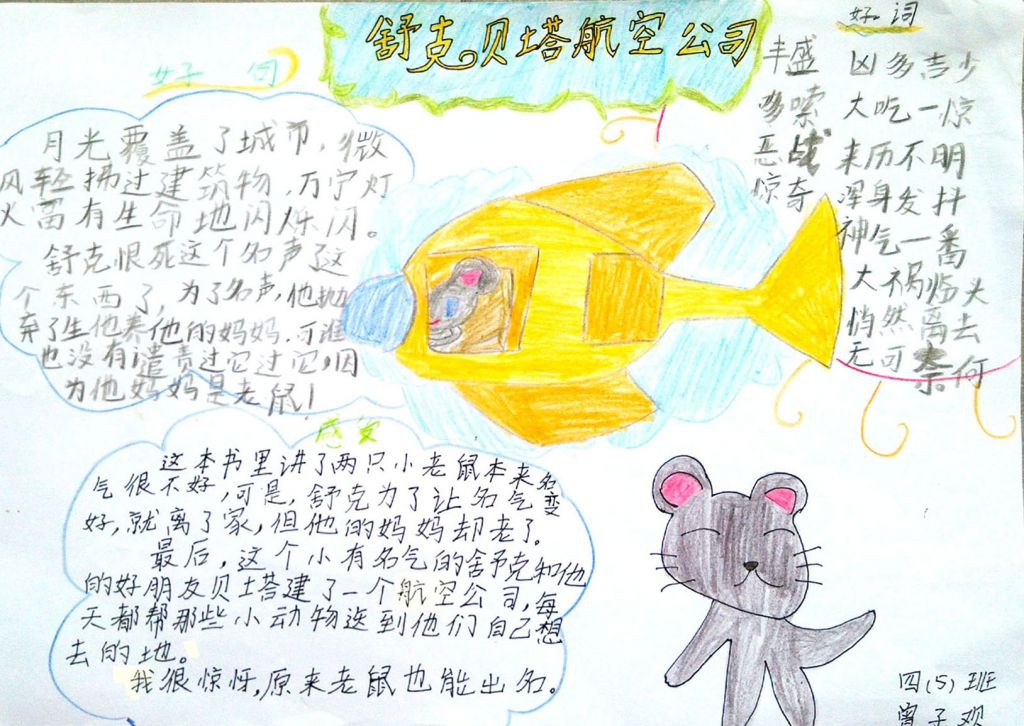 舒克贝塔航空公司
好句
月光覆盖了城市，微
风轻拂过建筑物，万家灯
火富有生命地闪烁闪。
舒克恨死这个名声这
个东西了，为了名声，他抛
弃了生他养他的妈妈。可谁
也没有谴责过它过它，因
为他妈妈是老鼠！
好词
丰盛 凶多吉少
哆嗦 大吃一惊
恶战 来历不明
惊奇 浑身发抖
神气一番
大祸临头
悄然离去
无可奈何
感受
这本书里讲了两只小老鼠本来名
气很不好，可是，舒克为了让名气变
好，就离了家，但他的妈妈却老了。
最后，这个小有名气的舒克和他
的好朋友贝塔建了一个航空公司，每
天都帮那些小动物送到他们自己想
去的地。
我很惊呀，原来老鼠也能出名。
四(5)班
子观